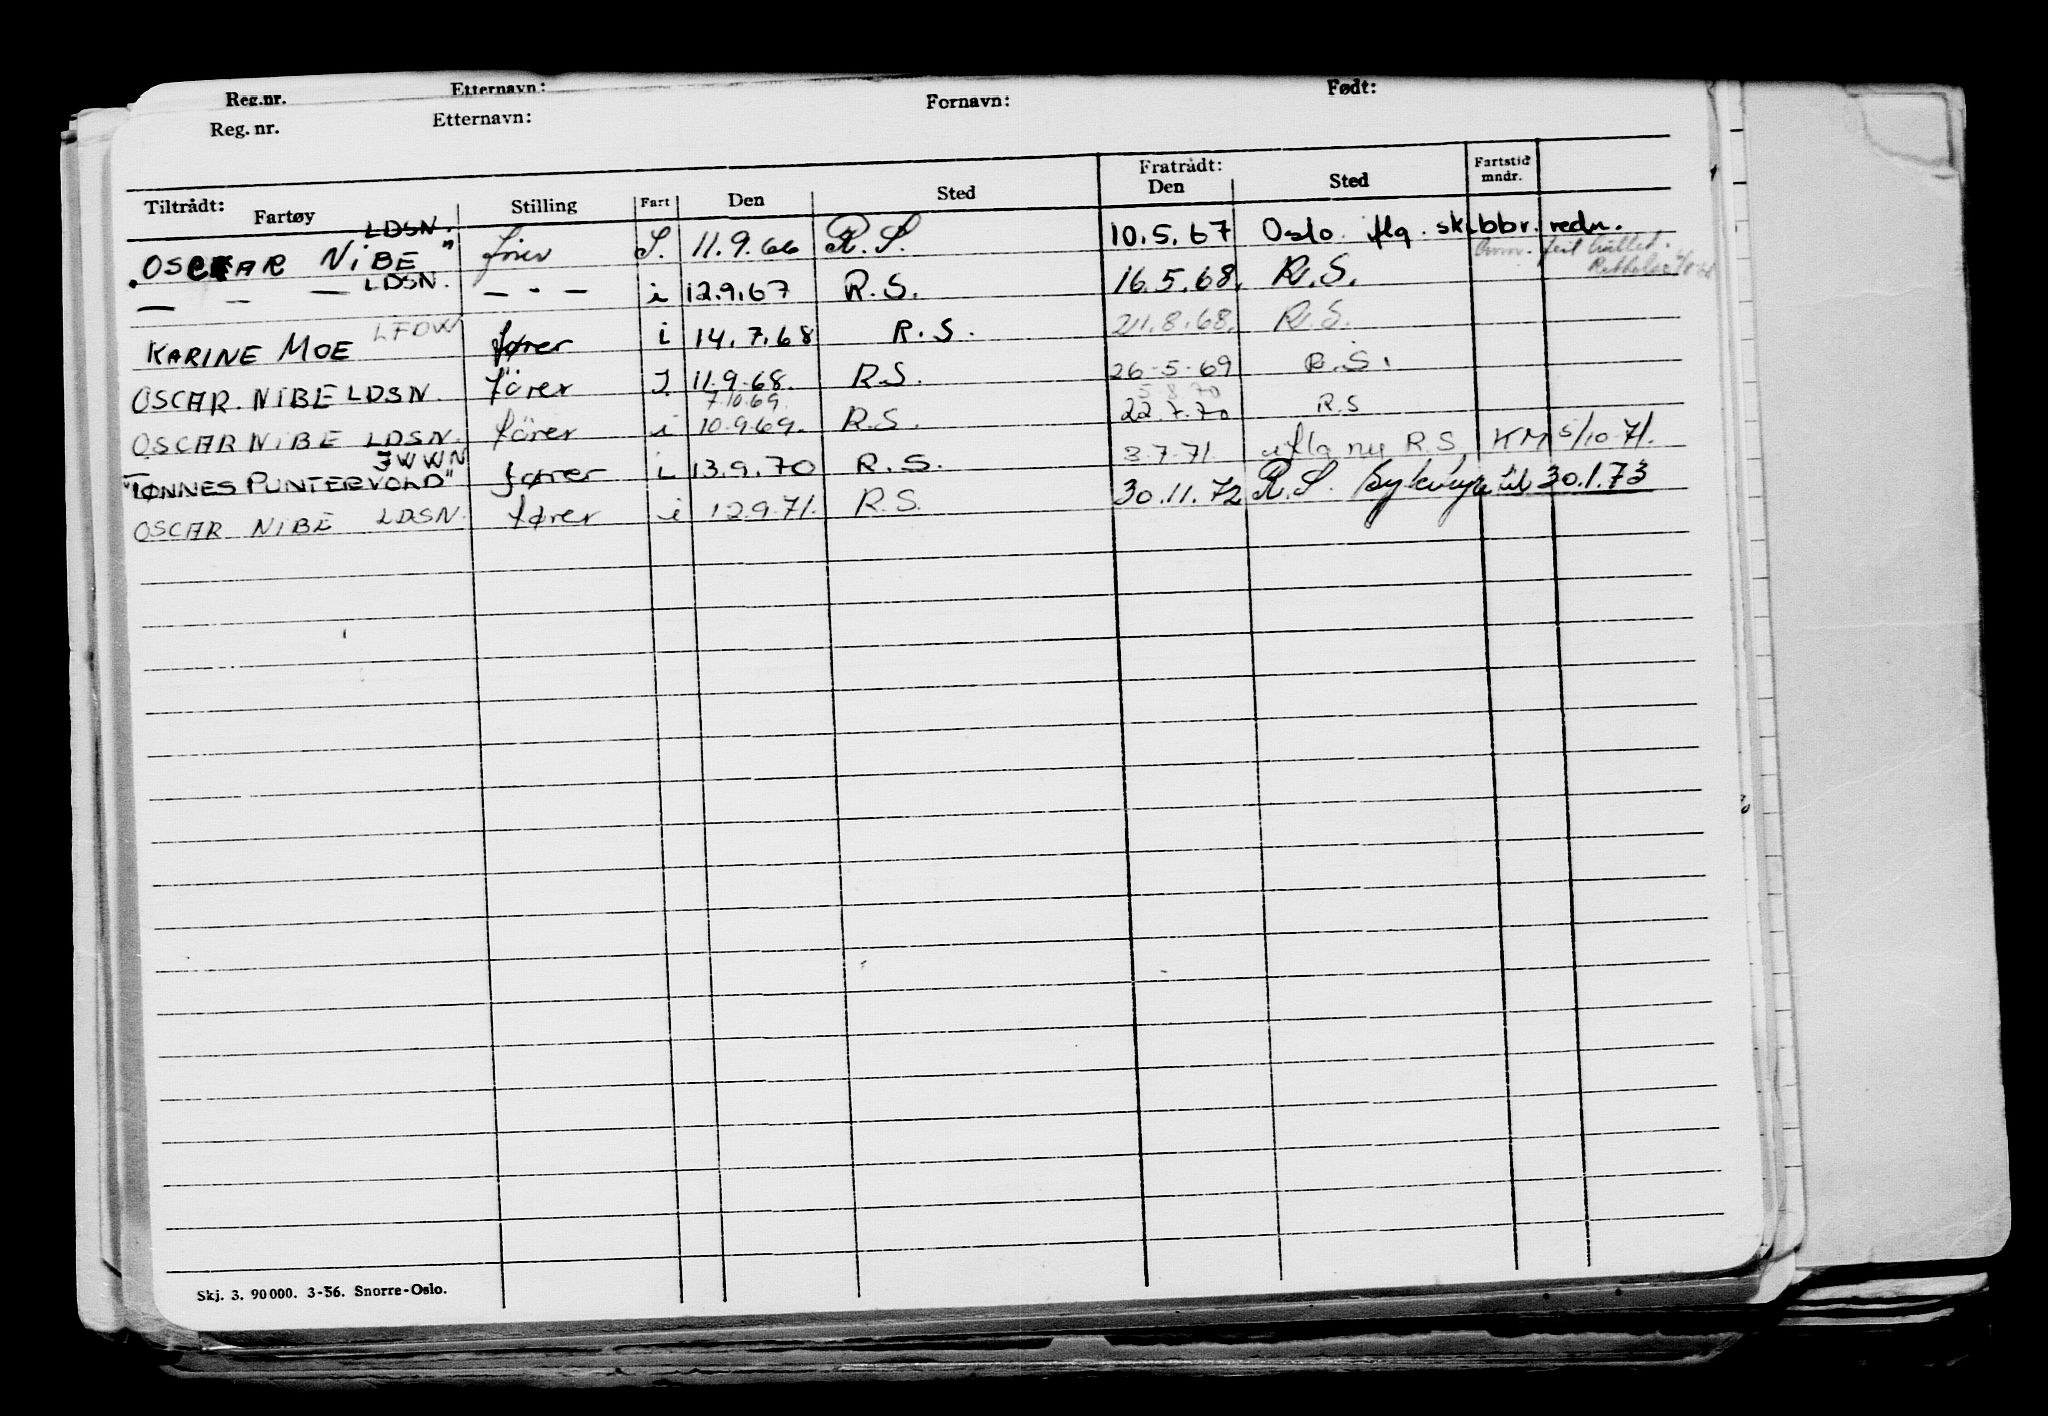 Reg.nr. Etternavn: Født:
Reg. nr. Etternavn: Fornavn:
Tiltrådt: Fratrådt: Fartstid mndr.
Fartøy Stilling Fart Den Sted Den Sted
"OSCAR NIBE" LDSN. fører S. 11.9.66 R.S. 10.5.67 Oslo iflg. skibbr. redn.
— — — LDSN. — - — i 12.9.67 R.S. 16.5.68. R.S. feil
KARINE MOE LFDW fører i 14.7.68 R.S. 211.8.68. R.S.
OSCAR NIBE LDSN. förer I 11.9.68. R.S. 26-5-69 R.S.
7.10.69. 5.8.70
OSCAR NIBE LDSN. förer i 10.9.69. R.S. 22.7.70 R.S
"TØNNES PUNTERVOLD" JWWN fører i 13.9.70 R.S. 3.7-71 iflg ny R.S. KM 5/10-71.
OSCAR NIBE LDSN. fører i 12.9.71. R.S. 30.11.72 R.S. til 30.1.73
Skj. 3. 90 000. 3-56. Snorre-Oslo.